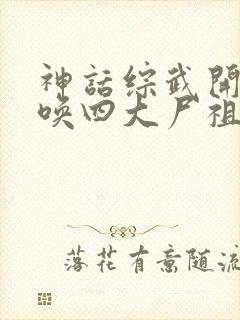 神话综武开
唤四大尸祖
落花有意随流